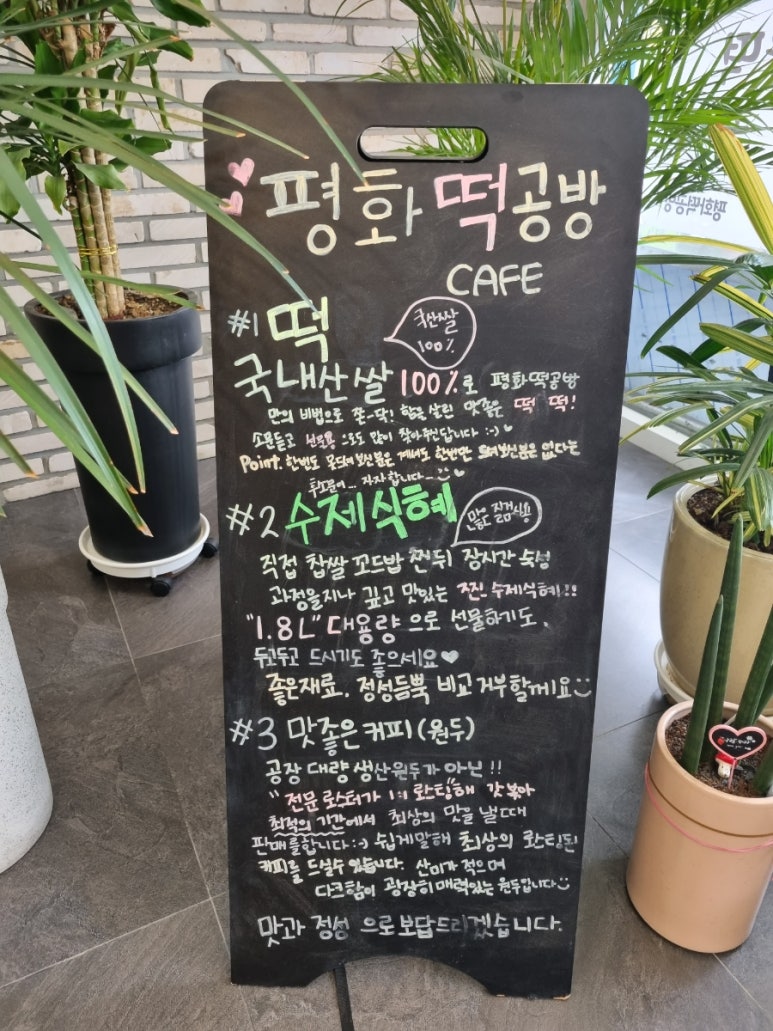 평화떡공방
CAFE
#1 떡
국산쌀
100%
국내산쌀 100%로 평화떡공방
만의 비법으로 쫀-득! 함을 살린 맛좋은 떡 떡!
소문듣고 선물용으로도 많이 찾아주신답니다 :-)
Point. 한번도 못드셔보신분은 계셔도 한번만 드셔보신분은 없다는
후문이... 자자합니다~
#2 수제식혜
직접 찹쌀 꼬드밥 찐뒤 장시간 숙성
과정을지나 깊고 맛있는 찐. 수제식혜!!
"1.8L" 대용량으로 선물하기도,
두고두고 드시기도 좋으세요
좋은재료. 정성듬뿍 비교거부할께요
#3 맛좋은 커피(원두)
공장 대량생산원두가 아닌!!
"전문로스터가 1:1 로스팅"해 갓볶아
최적의 기간에서 최상의 맛을 낼때
판매를합니다:-) 쉽게말해 최상의 로스팅된
커피를 드실수있습니다. 산미가 적으며
다크함이 굉장히매력있는 원두입니다
맛과 정성 으로보답드리겠습니다.
평화떡공방